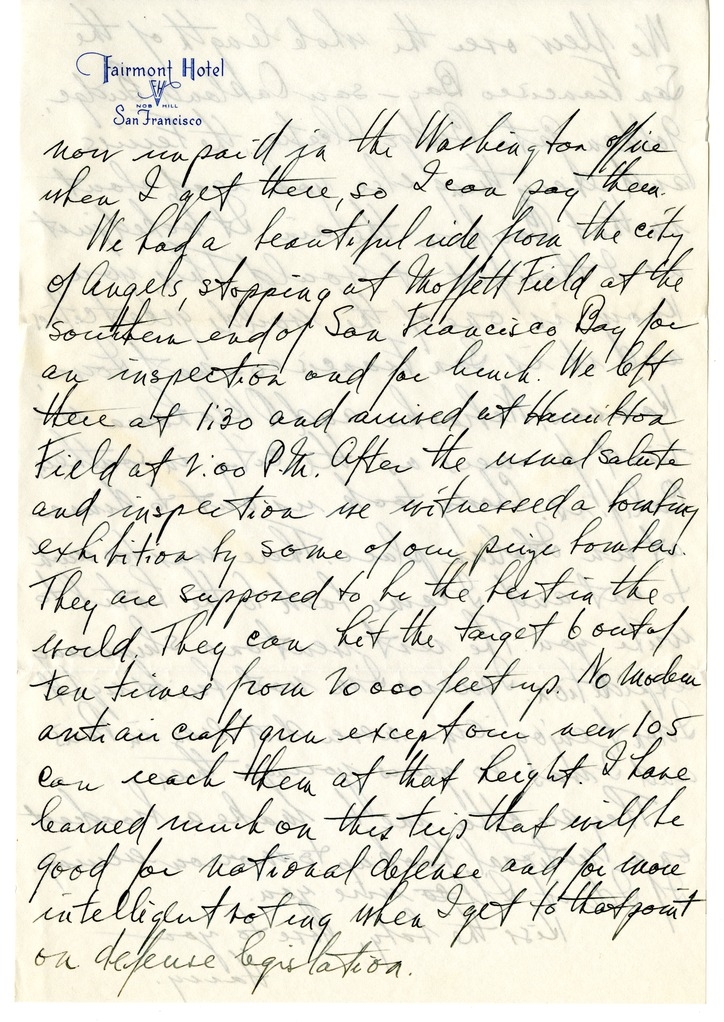 Fairmont Hotel
FH
NOB HILL
San Francisco
now unpaid in the Washington office
when I get there, so I can pay them.
We had a beautiful ride from the city
of Angels, stopping at Moffett Field at the
southern end of San Francisco Bay for
an inspection and for lunch. We left
there at 1:30 and arrived at Hamilton
Field at 2:00 P.M. After the usual salute
and inspection we witnessed a bombing
exhibition by some of our prize bombers.
They are supposed to be the best in the
world. They can hit the target 6 out of
ten times from 20000 feet up. No modern
anti air craft gun except our new 105
can reach them at that height. I have
learned much on this trip that will be
good for national defense and for more
intelligent voting when I get to that point
on defense legislation.